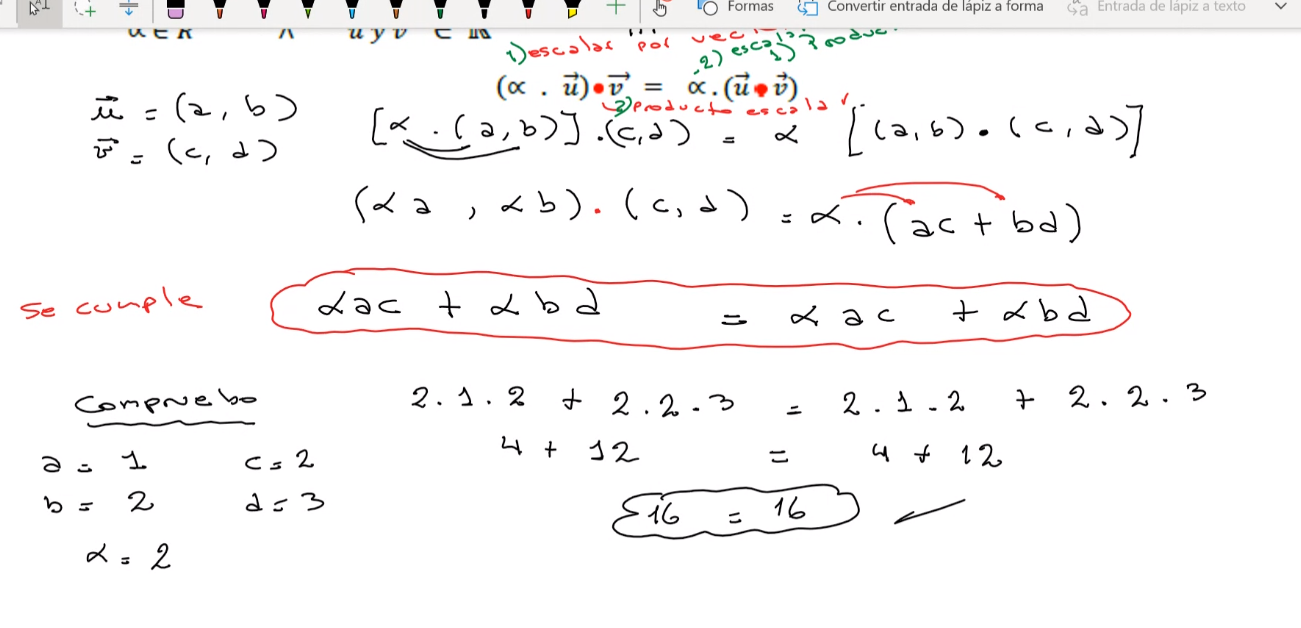 Formas Convertir entrada de lápiz a forma Entrada de lápiz a texto
u y v ∈
1) escalar por
2) escalar
(∝ . u⃗) • v⃗ = ∝ . (u⃗ • v⃗)
2) producto escalar
u⃗ = (a, b)
v⃗ = (c, d)
[∝ . (a, b)] . (c, d) = ∝ [(a, b) . (c, d)]
(∝ a , ∝ b) . (c, d) = ∝ . (ac + bd)
se cumple
∝ac + ∝bd = ∝ac + ∝bd
Compruebo
2 . 1 . 2 + 2 . 2 . 3 = 2 . 1 . 2 + 2 . 2 . 3
4 + 12 = 4 + 12
a = 1 c = 2
b = 2 d = 3
16 = 16
∝ = 2